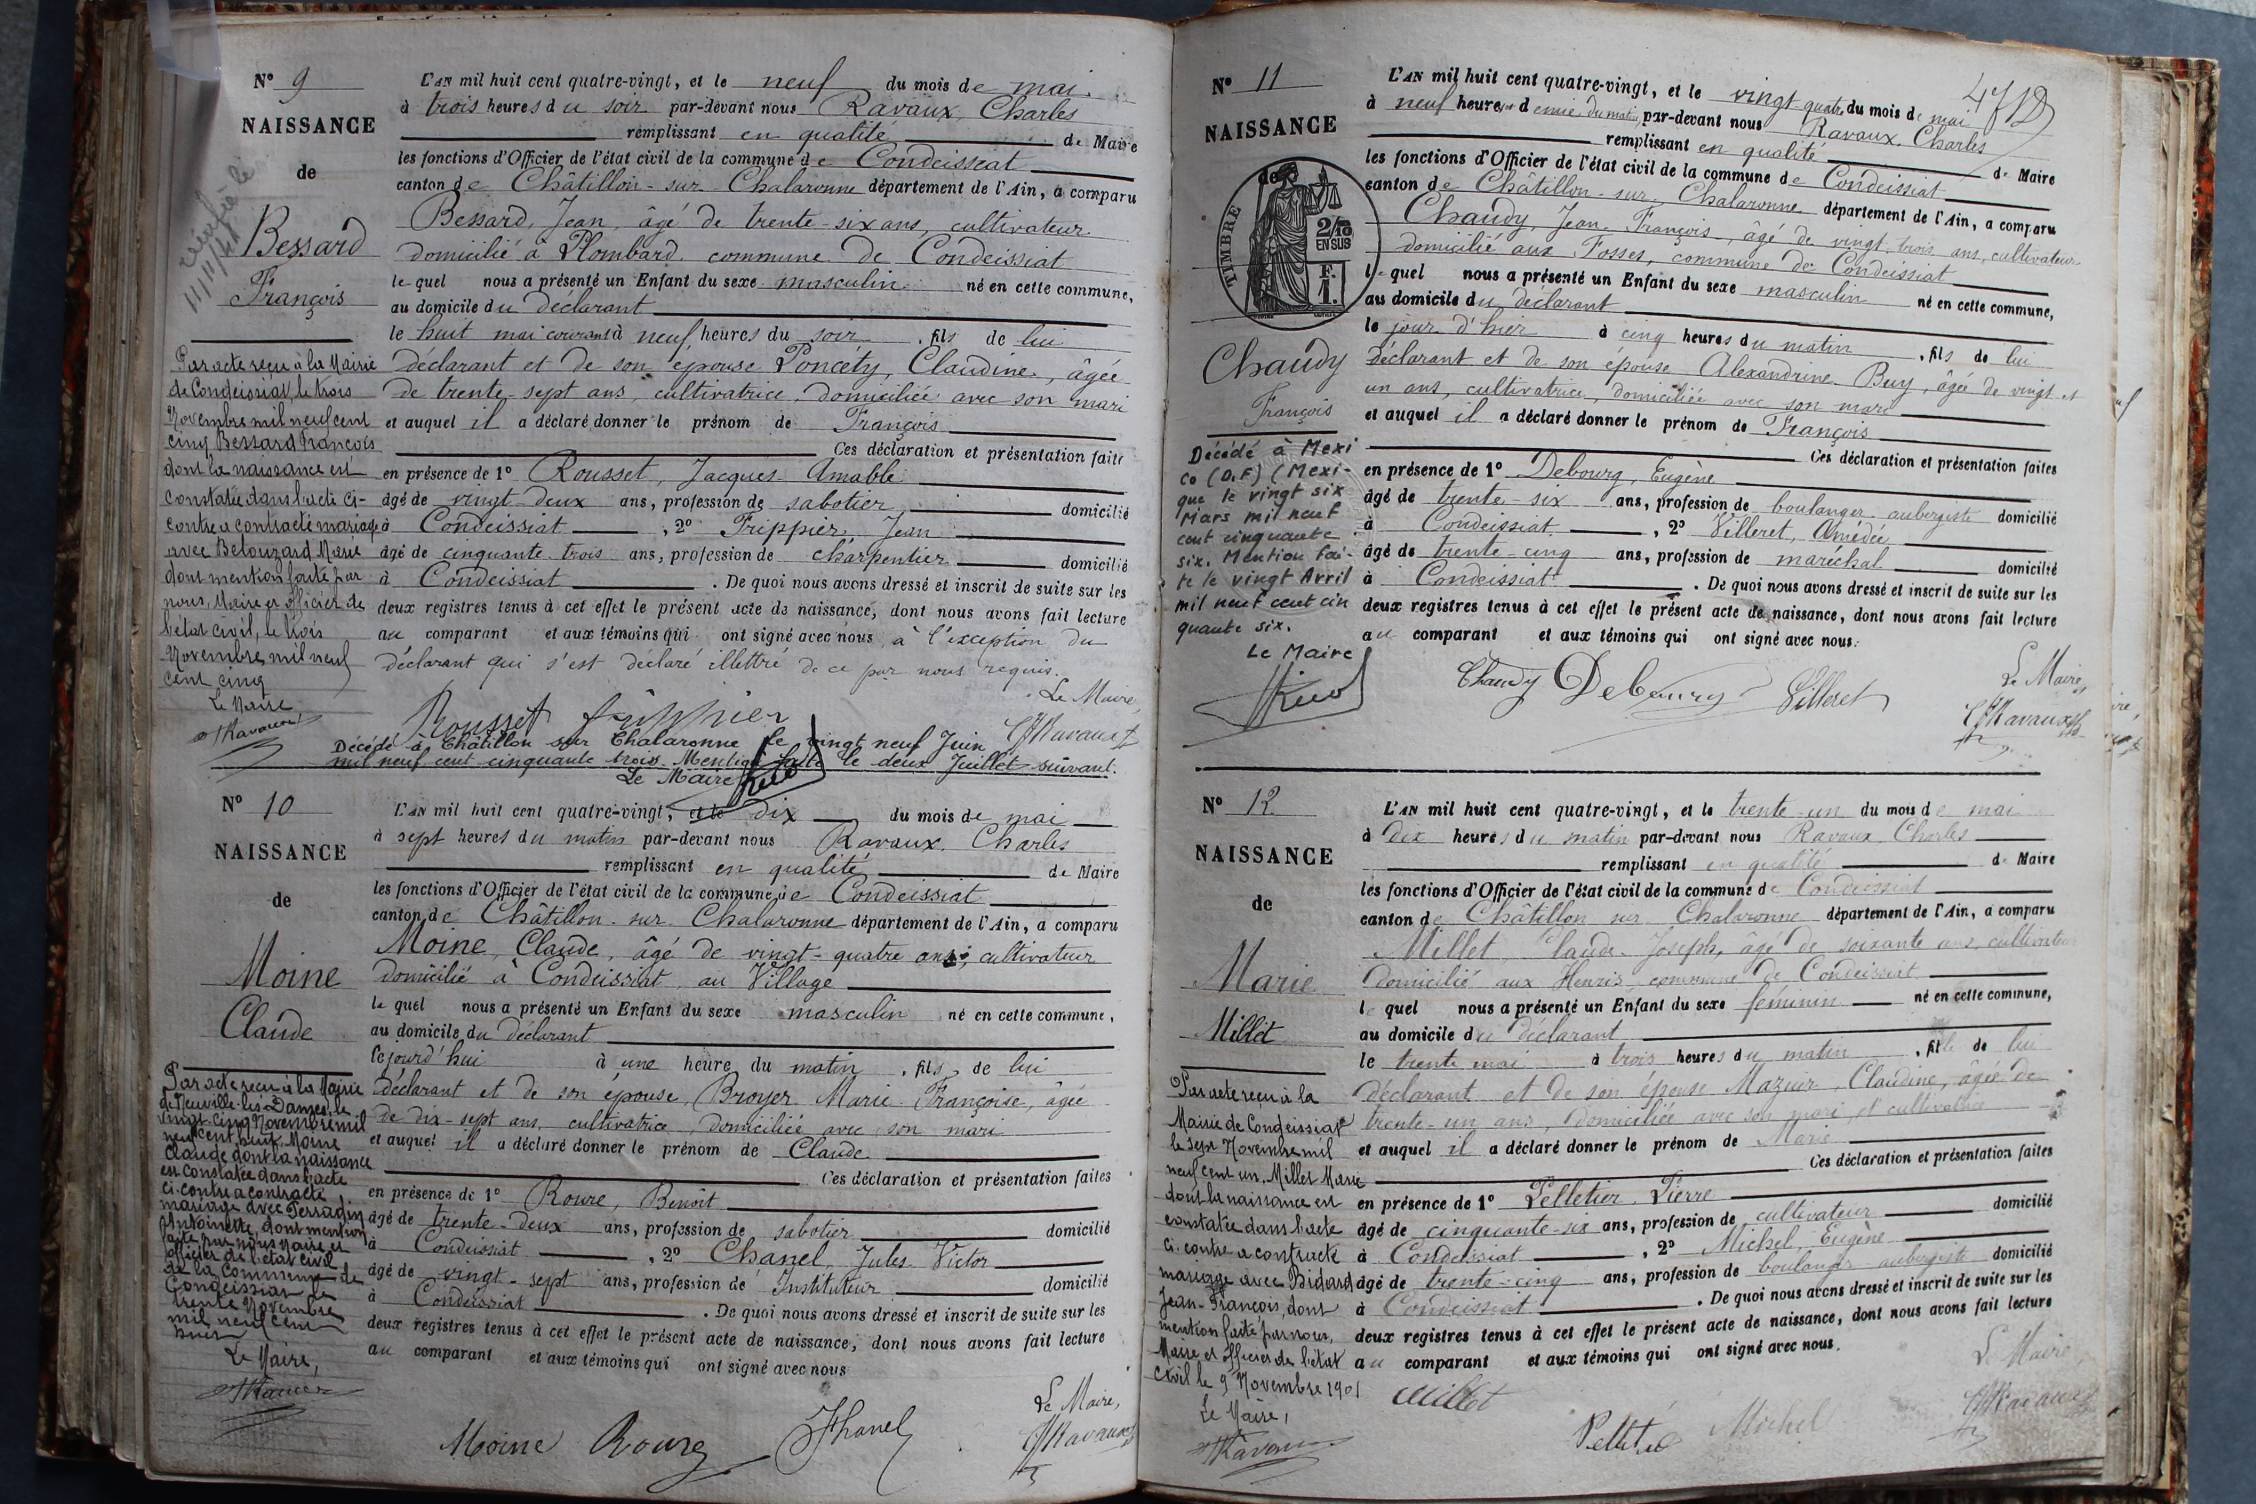 N° 9
NAISSANCE
de
Bessard
François
L'AN mil huit cent quatre-vingt, et le neuf du mois de mai.
à trois heures du soir par-devant nous Ravaux, Charles
remplissant en qualité de Maire
les fonctions d'Officier de l'état civil de la commune de Condeissiat
canton de Châtillon-sur-Chalaronne département de l'Ain, a comparu
Bessard, Jean, âgé de trente-six ans, cultivateur
domicilié à Plombard commune de Condeissiat
lequel nous a présenté un Enfant du sexe masculin né en cette commune,
au domicile du déclarant
le huit mai courant à neuf heures du soir, fils de lui
déclarant et de son épouse Poncéty, Claudine, âgée
de trente-sept ans, cultivatrice, domiciliée avec son mari
et auquel il a déclaré donner le prénom de François
Ces déclaration et présentation faites
en présence de 1° Rousset, Jacques Amable
âgé de vingt-deux ans, profession de sabotier domicilié
à Condeissiat, 2° Frippier, Jean
âgé de cinquante-trois ans, profession de charpentier domicilié
à Condeissiat. De quoi nous avons dressé et inscrit de suite sur les
deux registres tenus à cet effet le présent acte de naissance, dont nous avons fait lecture
au comparant et aux témoins qui ont signé avec nous à l'exception du
déclarant qui s'est déclaré illettré de ce par nous requis.
Le Maire,
Rousset frippier
CRavaux
Par acte reçu à la Mairie
de Condeissiat, le trois
Novembre mil neuf cent
cinq Bessard François
dont la naissance est
constatée dans l'acte ci-
contre a contracté mariage
avec Betouzard Marie
dont mention faite par
nous, Maire et officier de
l'état civil, le trois
Novembre mil neuf
cent cinq
Le Maire
Ravaux
Décédé à Châtillon sur Chalaronne le vingt neuf Juin
mil neuf cent cinquante trois. Mention faite le deux Juillet suivant.
Le Maire
N° 10
NAISSANCE
de
Moine
Claude
L'AN mil huit cent quatre-vingt, et le dix du mois de mai
à sept heures du matin par-devant nous Ravaux, Charles
remplissant en qualité de Maire
les fonctions d'Officier de l'état civil de la commune de Condeissiat
canton de Châtillon-sur-Chalaronne département de l'Ain, a comparu
Moine, Claude, âgé de vingt-quatre ans, cultivateur
domicilié à Condeissiat au Village
lequel nous a présenté un Enfant du sexe masculin né en cette commune,
au domicile du déclarant
cejourd'hui à une heure du matin, fils de lui
déclarant et de son épouse Broyer Marie Françoise, âgée
de dix-sept ans, cultivatrice, domiciliée avec son mari
et auquel il a déclaré donner le prénom de Claude
Ces déclaration et présentation faites
en présence de 1° Roure, Benoît
âgé de trente-deux ans, profession de sabotier domicilié
à Condeissiat, 2° Chanel, Jules Victor
âgé de vingt-sept ans, profession de Instituteur domicilié
à Condeissiat. De quoi nous avons dressé et inscrit de suite sur les
deux registres tenus à cet effet le présent acte de naissance, dont nous avons fait lecture
au comparant et aux témoins qui ont signé avec nous
Le Maire,
Moine Roure JChanel CRavaux
Par acte reçu à la Mairie
de Neuville-les-Dames, le
vingt-cinq Novembre mil
neuf cent huit Moine
Claude dont la naissance
est constatée dans l'acte
ci-contre a contracté
mariage avec Perradin
Antoinette, dont mention
faite par nous Maire et
officier de l'état civil
de la commune de
Condeissiat le
trente Novembre
mil neuf cent
huit
Le Maire,
Ravaux
N° 11
NAISSANCE
de
TIMBRE
2/10
EN SUS
F.
1.
Chaudy
François
L'AN mil huit cent quatre-vingt, et le vingt-quatre du mois de mai
à neuf heures et demie du matin par-devant nous Ravaux, Charles
remplissant en qualité de Maire
les fonctions d'Officier de l'état civil de la commune de Condeissiat
canton de Châtillon-sur-Chalaronne département de l'Ain, a comparu
Chaudy, Jean François, âgé de vingt-trois ans, cultivateur
domicilié aux Fosses, commune de Condeissiat
lequel nous a présenté un Enfant du sexe masculin né en cette commune,
au domicile du déclarant
le jour d'hier à cinq heures du matin, fils de lui
déclarant et de son épouse Alexandrine Buy, âgée de vingt et
un ans, cultivatrice, domiciliée avec son mari
et auquel il a déclaré donner le prénom de François
Ces déclaration et présentation faites
en présence de 1° Debourg, Eugène
âgé de trente-six ans, profession de boulanger aubergiste domicilié
à Condeissiat, 2° Villeret, Amédée
âgé de trente-cinq ans, profession de maréchal domicilié
à Condeissiat. De quoi nous avons dressé et inscrit de suite sur les
deux registres tenus à cet effet le présent acte de naissance, dont nous avons fait lecture
au comparant et aux témoins qui ont signé avec nous.
Le Maire,
Chaudy Debourg Villeret CRavaux
Décédé à Mexi
co (D.F) (Mexi-
que le vingt six
Mars mil neuf
cent cinquante
six. Mention fai-
te le vingt Avril
mil neuf cent cin
quante six.
Le Maire
N° 12
NAISSANCE
de
Marie
Millet
L'AN mil huit cent quatre-vingt, et le trente-un du mois de mai
à dix heures du matin par-devant nous Ravaux, Charles
remplissant en qualité de Maire
les fonctions d'Officier de l'état civil de la commune de Condeissiat
canton de Châtillon sur Chalaronne département de l'Ain, a comparu
Millet, Claude-Joseph, âgé de soixante ans, cultivateur
domicilié aux Henris, commune de Condeissiat
lequel nous a présenté un Enfant du sexe féminin né en cette commune,
au domicile du déclarant
le trente mai à trois heures du matin, fille de lui
déclarant et de son épouse Mazuir, Claudine, âgée de
trente-un ans, domiciliée avec son mari et cultivatrice
et auquel il a déclaré donner le prénom de Marie
Ces déclaration et présentation faites
en présence de 1° Pelletier, Pierre
âgé de cinquante-six ans, profession de cultivateur domicilié
à Condeissiat, 2° Michel, Eugène
âgé de trente-cinq ans, profession de boulanger aubergiste domicilié
à Condeissiat. De quoi nous avons dressé et inscrit de suite sur les
deux registres tenus à cet effet le présent acte de naissance, dont nous avons fait lecture
au comparant et aux témoins qui ont signé avec nous.
Le Maire,
Millet Pelletié Michel CRavaux
Par acte reçu à la
Mairie de Condeissiat
le sept Novembre mil
neuf cent un. Millet Marie
dont la naissance est
constatée dans l'acte
ci-contre a contracté
mariage avec Bidard
Jean-François, dont
mention faite par nous,
Maire et officier de l'état
civil le 9 Novembre 1901
Le Maire,
Ravaux